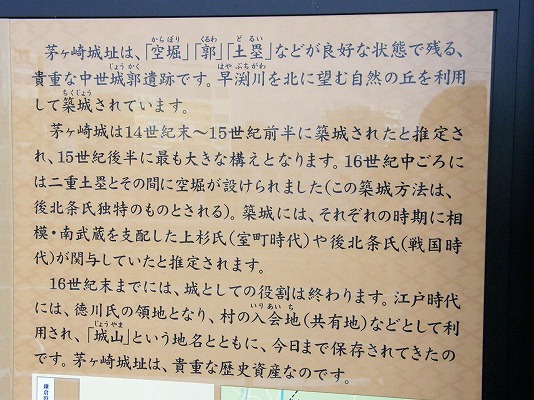 茅ヶ崎城址は、「空堀」「郭」「土塁」などが良好な状態で残る、
貴重な中世城郭遺跡です。早渕川を北に望む自然の丘を利用
して築城されています。
茅ヶ崎城は14世紀末～15世紀前半に築城されたと推定さ
れ、15世紀後半に最も大きな構えとなります。16世紀中ごろに
は二重土塁とその間に空堀が設けられました(この築城方法は、
後北条氏独特のものとされる)。築城には、それぞれの時期に相
模・南武蔵を支配した上杉氏(室町時代)や後北条氏(戦国時
代)が関与していたと推定されます。
16世紀末までには、城としての役割は終わります。江戸時代
には、徳川氏の領地となり、村の入会地(共有地)などとして利
用され、「城山」という地名とともに、今日まで保存されてきたの
です。茅ヶ崎城址は、貴重な歴史資産なのです。